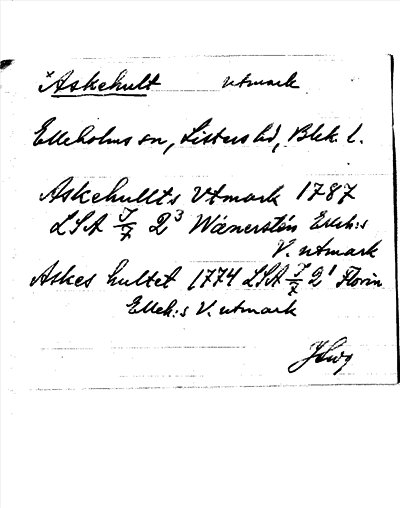 *Askehult utmark
Elleholms sn, Listers hd, Blek. l.
Askehullts Utmark 1787
LSA I/7 2³ Wænerstén Elleh:s
V. utmark
Askes hultet 1774 LSA I/7 2¹ Florin
Elleh:s V. utmark